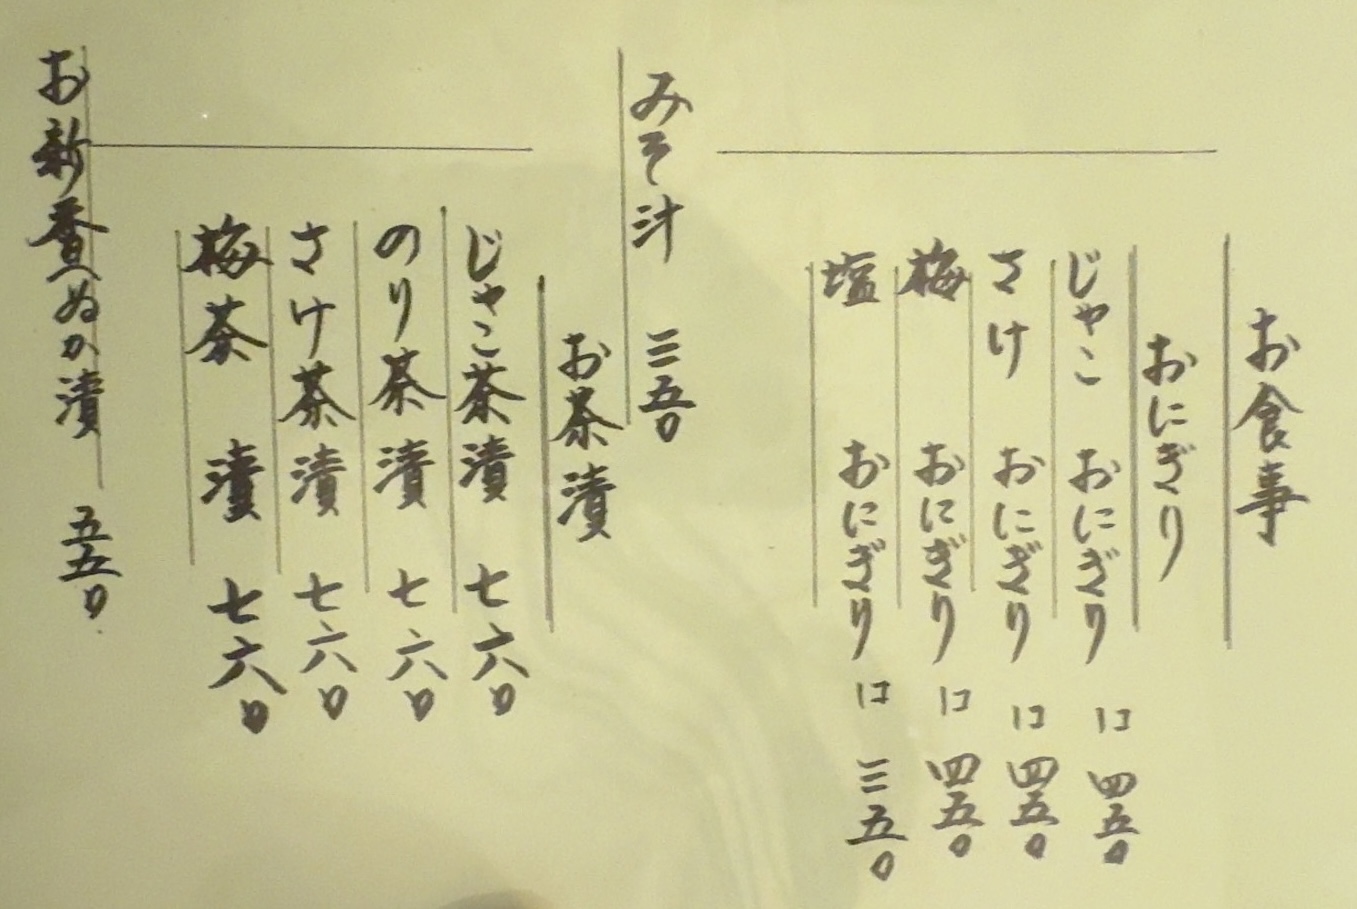 お食事
おにぎり
じゃこ おにぎり 1コ 四五〇
さけ おにぎり 1コ 四五〇
梅 おにぎり 1コ 四五〇
塩 おにぎり 1コ 三五〇
みそ汁 三五〇
お茶漬
じゃこ茶漬 七六〇
のり茶漬 七六〇
さけ茶漬 七六〇
梅茶漬 七六〇
お新香〈ぬか漬 五五〇